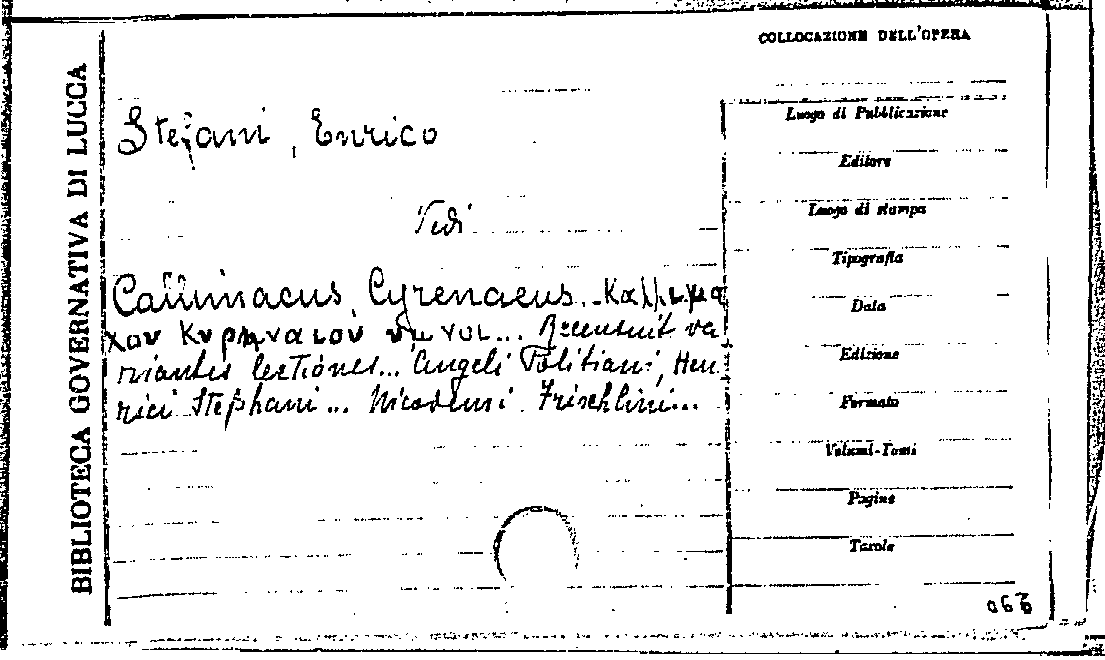 BIBLIOTECA GOVERNATIVA DI LUCCA
COLLOCAZIONE DELL'OPERA
Stefani, Enrico
Vedi
Callimacus Cyrenaeus. - Καλλιμα
χου Κυρηναιου υμνοι... Recensuit va
riantes lectiones... Angeli Politiani, Hen
rici Stephani... Nicodemi Frischlini...
Luogo di Pubblicazione
Editore
Luogo di stampa
Tipografia
Data
Edizione
Formato
Volumi-Tomi
Pagine
Tavole